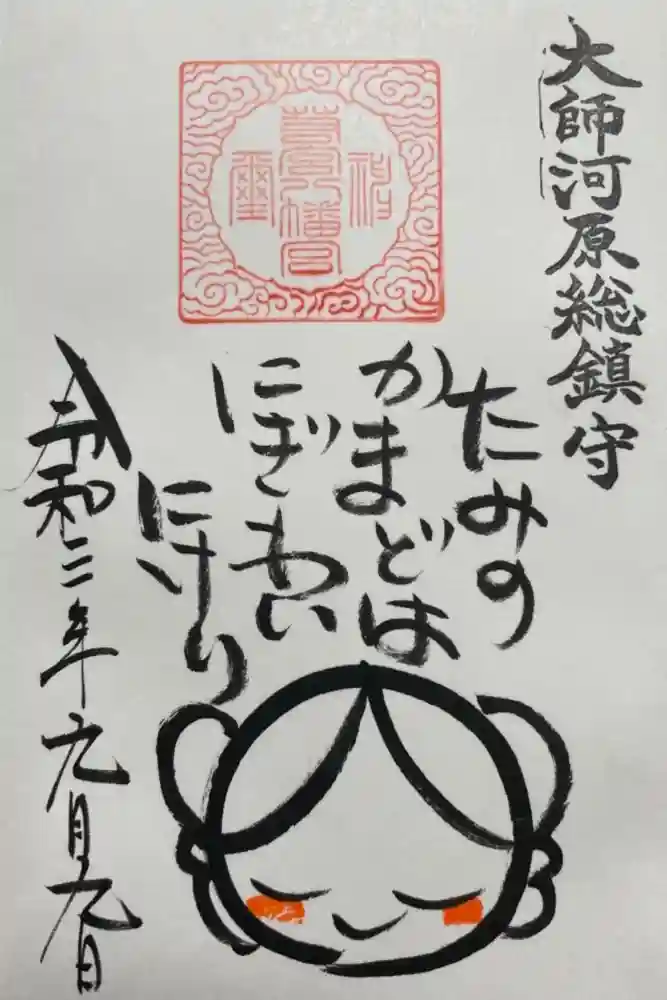 大師河原総鎮守
若宮八幡宮
神璽
たみの
かまどは
にぎわい
にけり
令和三年九月九日